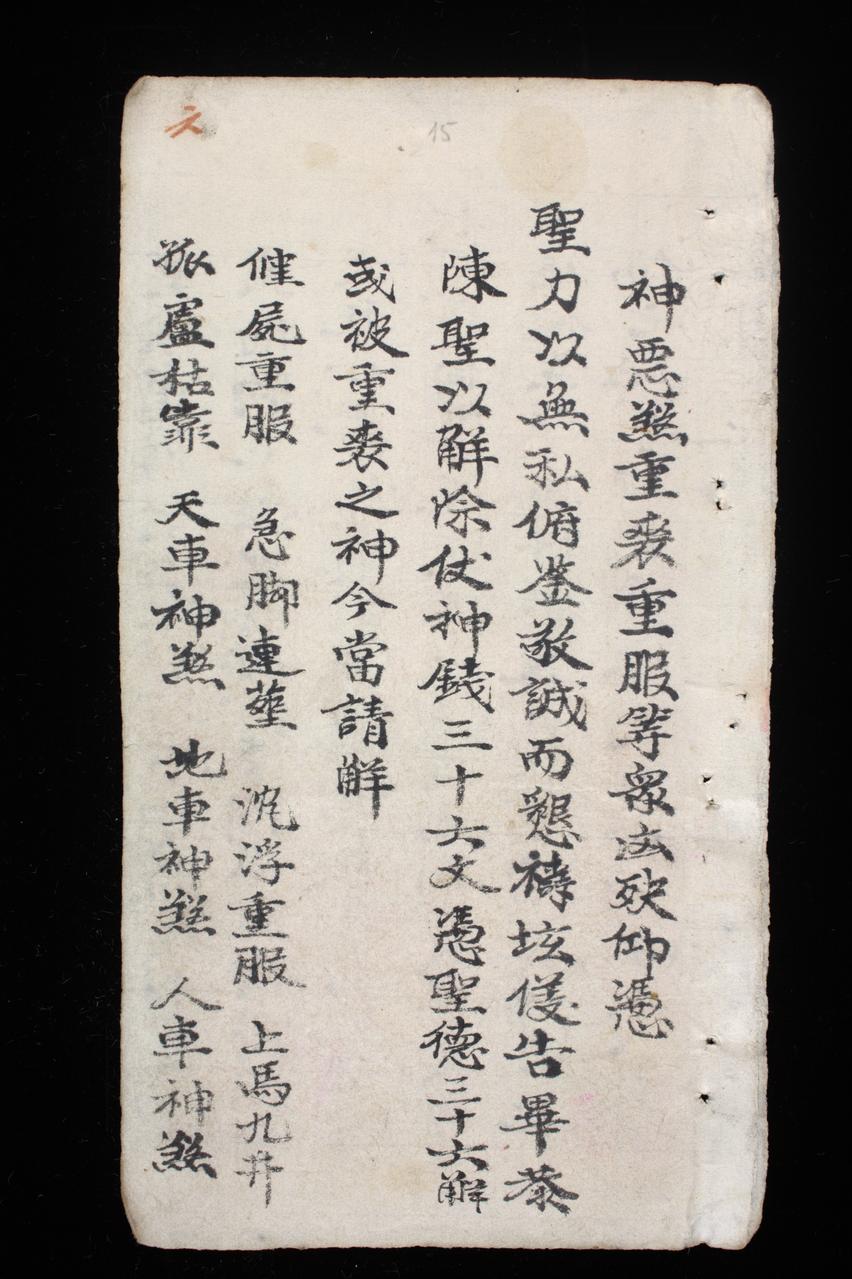 神惡煞重喪重服等衆凶殃仰憑
聖力以無私俯鉴敬誠而懇禱垓儀告畢恭
陳聖以解除仗神錢三十六文憑聖德三十六解
或被重喪之神今當請解
催屍重服 急脚連塟 沈浮重服 上馬九井
孤虛枯靠 天車神煞 地車神煞 人車神煞
15